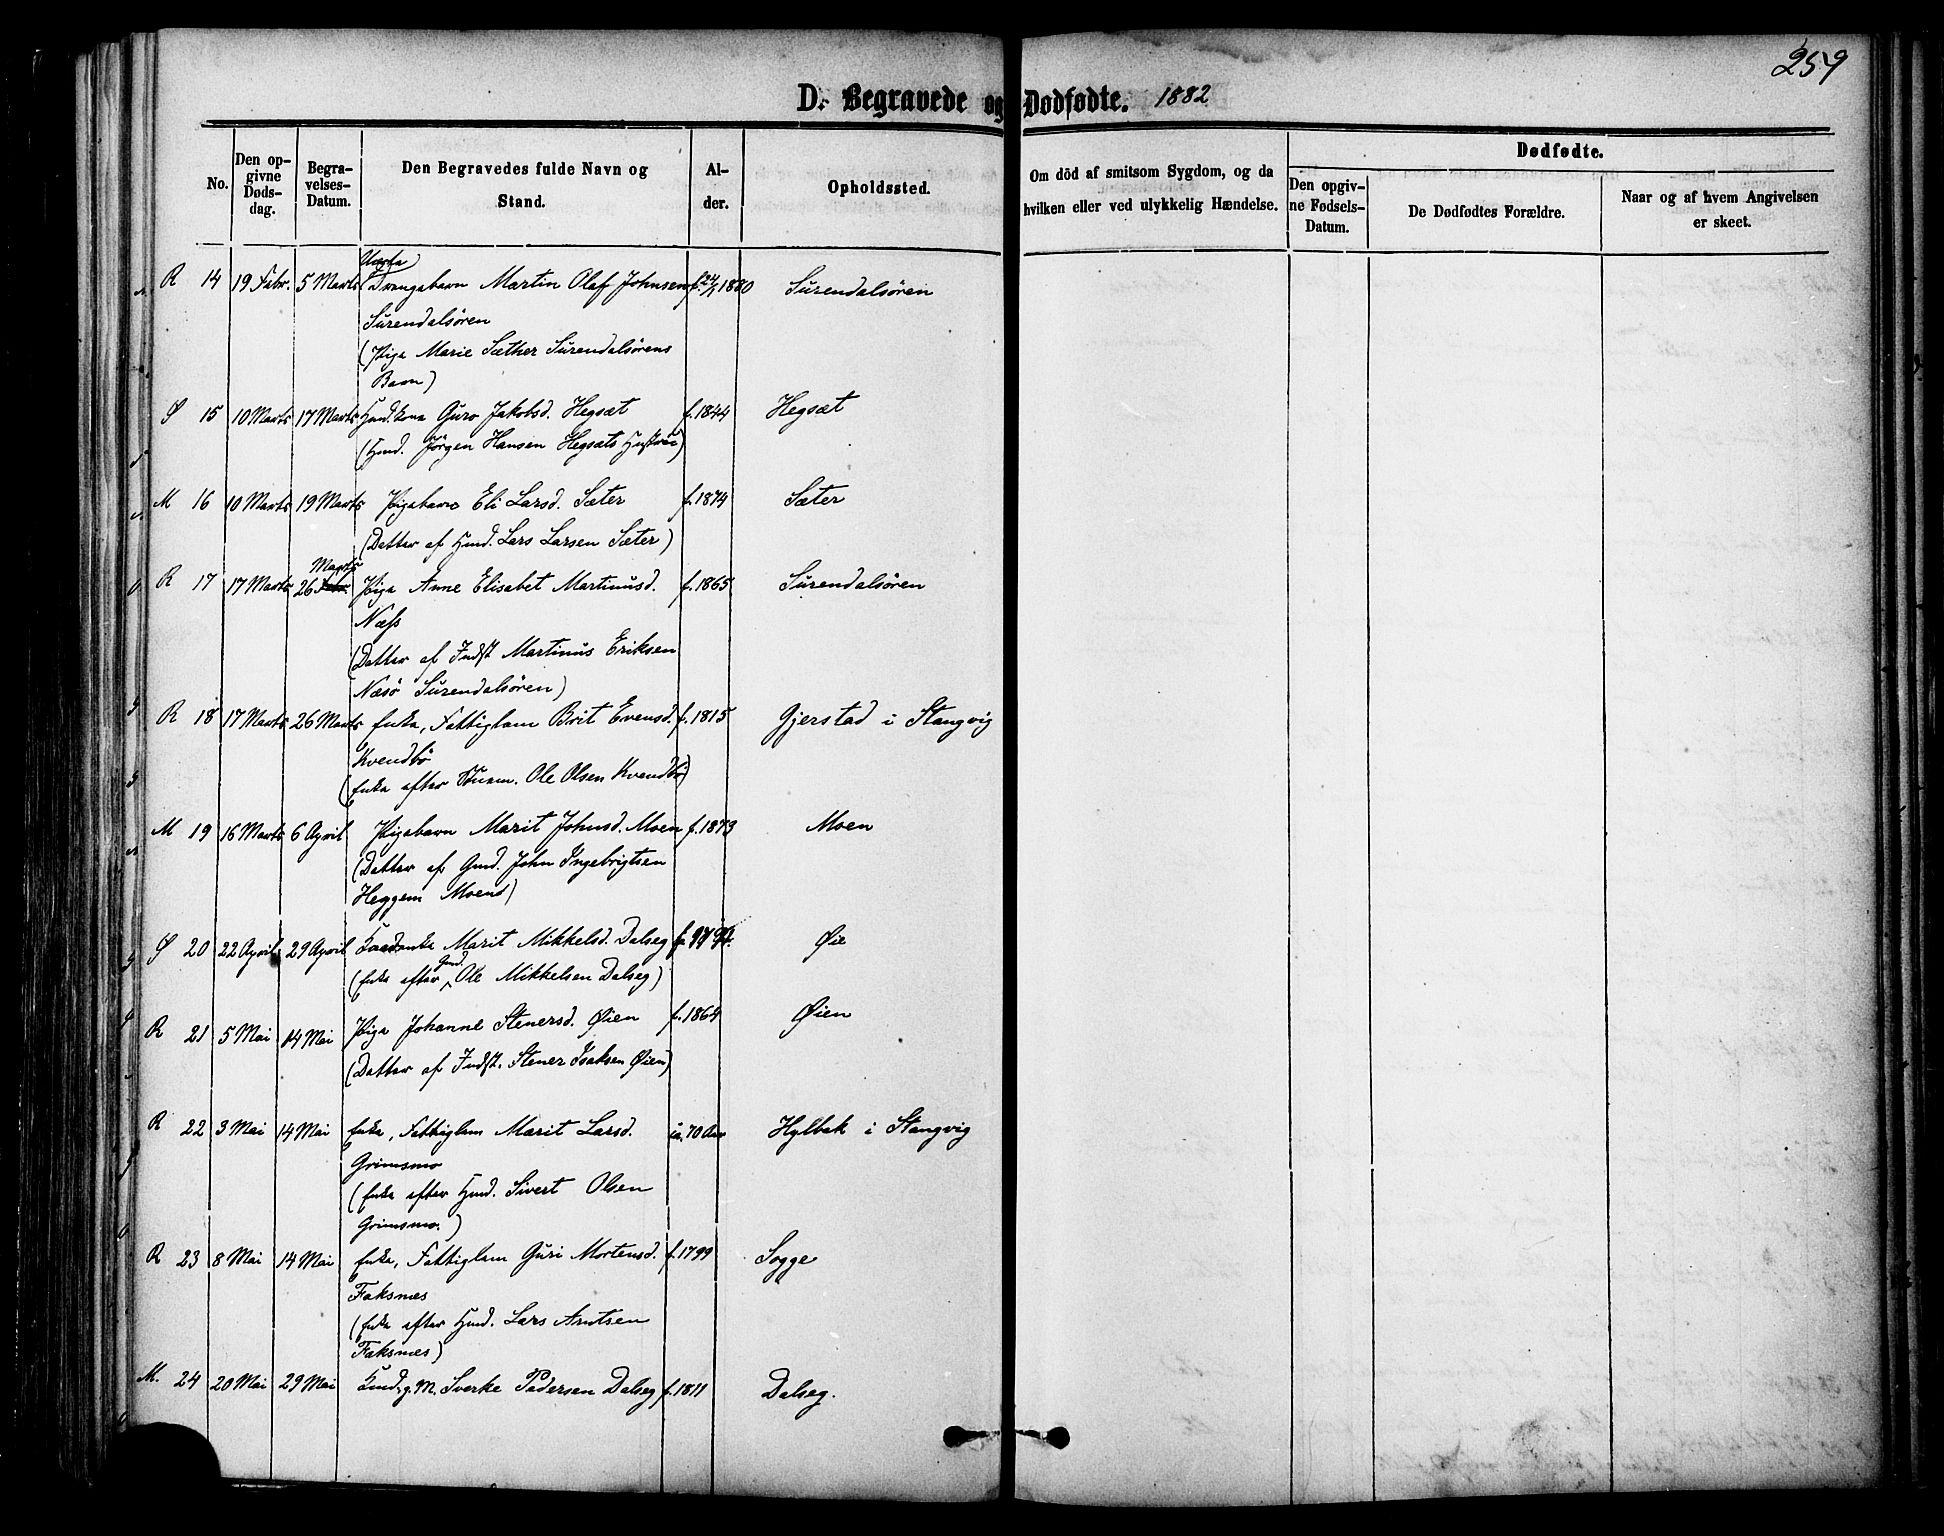 259
D. Begravede og Dødfødte. 1882
No.
Den opgivne Døds-dag.
Begra-velses-Datum.
Den Begravedes fulde Navn og Stand.
Al-der.
Opholdssted.
Om död af smitsom Sygdom, og da hvilken eller ved ulykkelig Hændelse.
Dødfødte.
Den opgiv-ne Fødsels-Datum.
De Dødfødtes Forældre.
Naar og af hvem Angivelsen er skeet.
Uægte
R 14 19 Febr. 5 Marts Drengebarn Martin Olaf Johnsen f. 24/1 1880 Surendalsören
Surendalsören
(Pige Marie Sæther Surendalsörens
Barn)
S 15 10 Marts 17 Marts Gmd.kone Guro Jakobsd. Hegsæt f. 1844 Hegsæt
(Gmd. Jörgen Hansen Hegsæts Hustru)
M 16 10 Marts 19 Marts Pigebarn Eli Larsd. Sæter f. 1874 Sæter
(Datter af Gmd. Lars Larsen Sæter)
Marts
R 17 17 Marts 26 Febr. Pige Anne Elisabet Martinusd. f. 1865 Surendalsören
Næss
(Datter af Indst Martinus Eriksen
Næsö Surendalsören)
R 18 17 Marts 26 Marts Enke, Fattiglem Brit Evensd. f. 1815 Gjerstad i Stangvig
Kvendbö
(Enke efter Ole Olsen Kvendbö)
M 19 16 Marts 6 April Pigebarn Marit Johnsd. Moen f. 1873 Moen
(Datter af Gmd. John Ingebrigtsen
Heggem Moen)
S 20 22 April 29 April Marit Mikkelsd. Dalseg Øie
Gmd.
(Enke efter Ole Mikkelsen Dalseg)
R 21 5 Mai 14 Mai Pige Johanne Stenersd. Øien f. 1864 Øien
(Datter af Indst. Stener Isaksen Øien)
R 22 3 Mai 14 Mai Enke, Fattiglem Marit Larsd. ca. 70 Aar Hylbak i Stangvig
Grimsmo
(Enke efter Gmd. Sivert Olsen
Grimsmo.)
R 23 8 Mai 14 Mai Enke, Fattiglem Guri Mortensd. f. 1799 Sogge
Faksnes
(Enke efter Gmd. Lars Arntsen
Faksnes)
M. 24 20 Mai 29 Mai g. M. Sverke Pedersen Dalseg f. 1811 Dalseg.